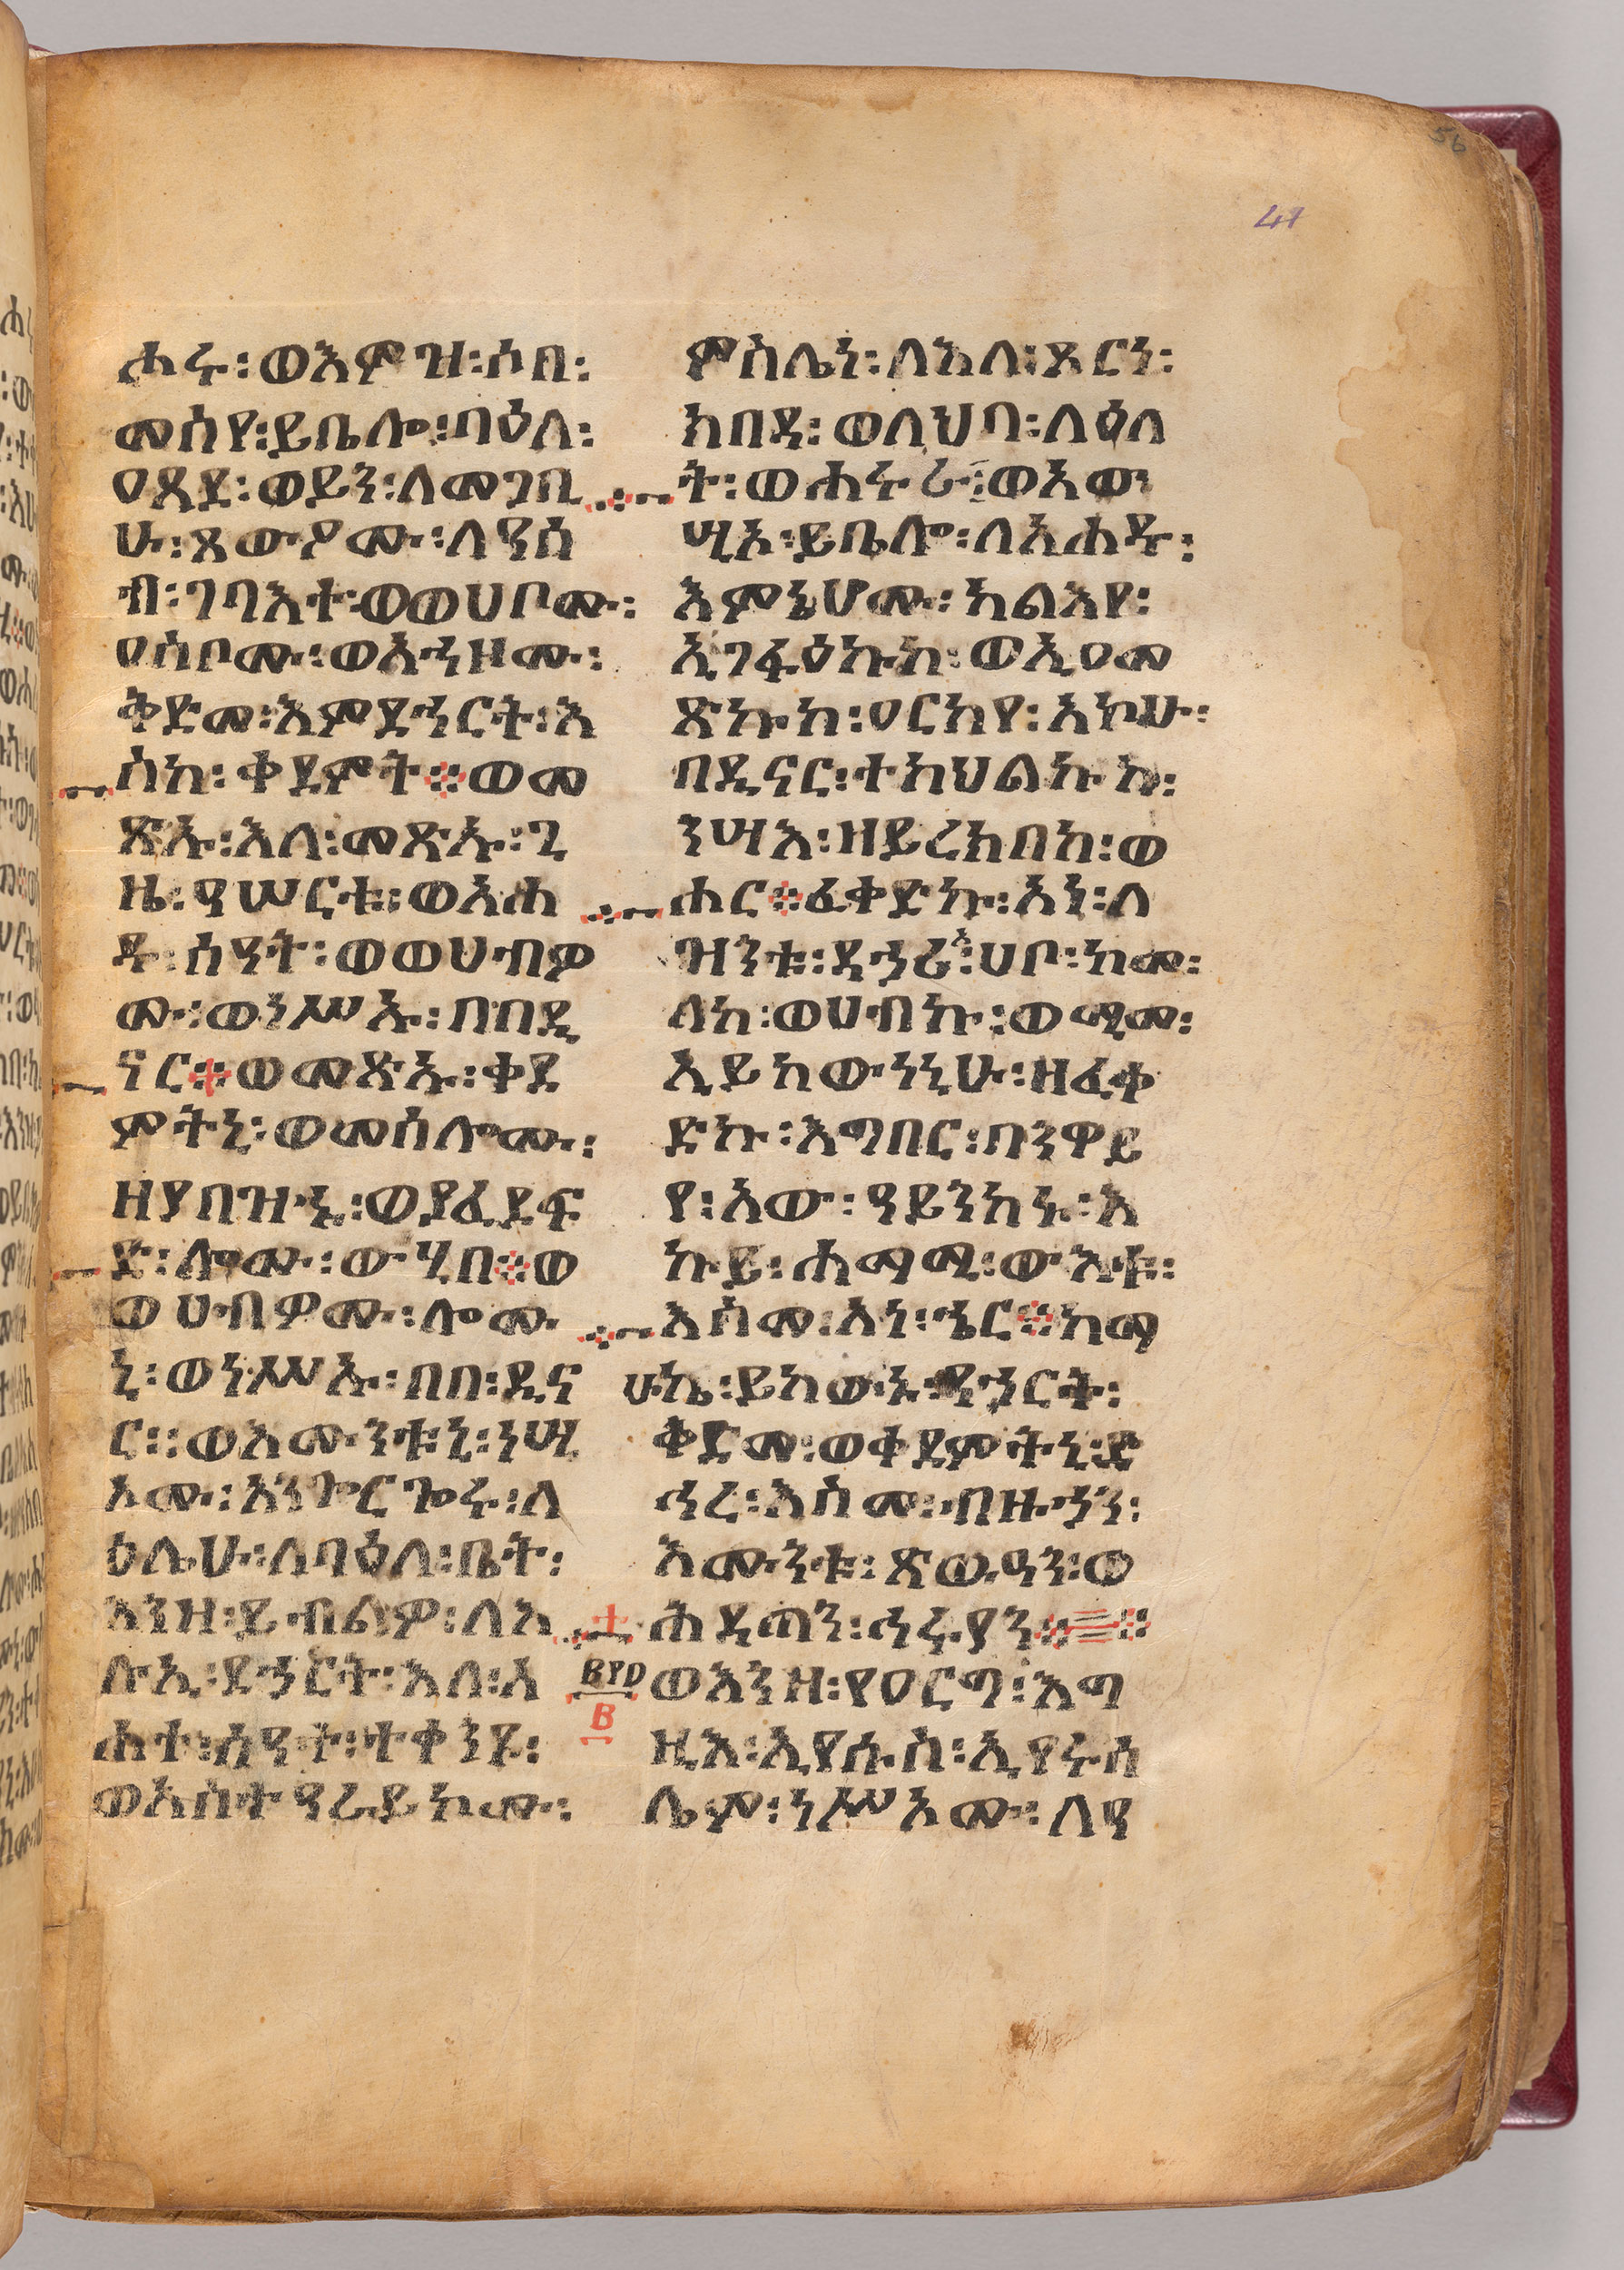 56
47
ሐሩ፡ወእምዝ፡ሶበ፡
መስየ፡ይቤሎ፡ባዕለ፡
ዐጸደ፡ወይን፡ለመጋቢ
ሁ፡ጸውዖሙ፡ለዓሰ
ብ፡ገባእተ፡ወወሀቦሙ፡
ዐስቦሙ፡ወእኅዞሙ፡
ቅድመ፡እምደኅርት፡እ
ስከ፡ቀደምት፨ወመ
ጽኡ፡እለ፡መጽኡ፡ጊ
ዜ፡ዓሠርቱ፡ወአሐ
ዱ፡ሰዓት፡ወወሀብዎ
ሙ፡ወነሥኡ፡በበዲ
ናር፨ወመጽኡ፡ቀደ
ምትኒ፡ወመሰሎሙ፡
ዘያበዝኁ፡ወያፈደፍ
ድ፡ሎሙ፡ውሂበ፨ወ
ወሀብዎሙ፡ሎሙ
ኒ፡ወነሥኡ፡በበ፡ዲና
ር፡፡ወእሙንቱኒ፡ነሢ
ኦሙ፡አንጐርጐሩ፡ለ
ዕሌሁ፡ለባዕለ፡ቤት፡
እንዘ፡ይብልዎ፡ለእ
ሉኒ፡ደኅርት፡እለ፡አ
ሐተ፡ሰዓተ፡ተቀንዩ፡
ወአስተዓረይኮሙ፡
ምስሌነ፡ለእለ፡ጾርነ፡
ክበዳ፡ወላህባ፡ለዕለ
ት፡ወሐሩራ፡ወአው
ሢኦ፡ይቤሎ፡ለአሐዱ፡
እምኔሆሙ፡ካልእየ፡
ኢገፋዕኩከ፡ወኢዐመ
ጽኩከ፡ዐርክየ፡አኮሁ፡
በዲናር፡ተካህልኩከ፡
ንሣእ፡ዘይረክበከ፡ወ
ሐር፨ፈቀድኩ፡አነ፡ለ
ዝንቱ፡ደኃሪ፡አሀቦ፡ከመ፡
ለከ፡ወሀብኩ፡ወሚመ፡
ኢይከውነኒሁ፡ዘፈቀ
ድኩ፡እግበር፡በንዋይ
የ፡አው፡ዓይንከኑ፡እ
ኩይ፡ሐማሚ፡ውእቱ፡
እስመ፡አነ፡ኄር፨ከማ
ሁኬ፡ይከውኑ፡ደኃርት፡
ቅድመ፡ወቀደምትኒ፡ድ
ኅረ፡እስመ፡ብዙኃን፡
እሙንቱ፡ጽዉዓን፡ወ
ሕዳጣን፡ኅሩያን፨
ወእንዘ፡የዐርግ፡እግ
ዚእ፡ኢየሱስ፡ኢየሩሳ
ሌም፡ነሥኦሙ፡ለዓ